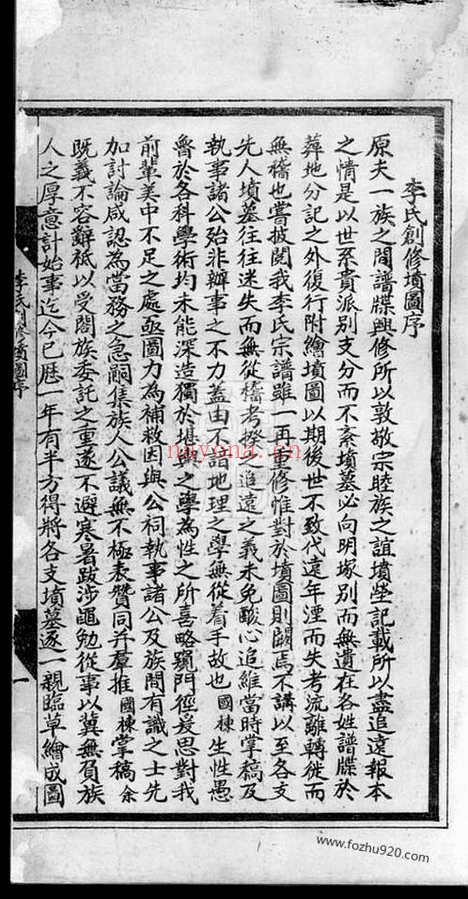 李氏創修墳圖序
原夫一族之間譜牒興修所以敦敬宗睦族之誼墳塋記載所以盡追遠報本
之情是以世系貴派別支分而不紊墳墓必向明塚別而無遺在各姓譜牒於
葬地分記之外復行附繪墳圖以期後世不致代遠年湮而失考流離轉徙而
無稽也嘗披閱我李氏宗譜雖一再重修惟對於墳圖則闕焉不講以至各支
先人墳墓往往迷失而無從稽考揆之追遠之義未免酸心追維當時掌稿及
執事諸公殆非辦事之不力蓋由不諳地理之學無從着手故也國棟生性愚
魯於各科學術均未能深造獨於堪輿之學為性之所喜略窺門徑爰思對我
前輩美中不足之處亟圖力為補救因與公祠執事諸公及族間有識之士先
加討論咸認為當務之急嗣集族人公議無不極表贊同并羣推國棟掌稿余
既義不容辭祇以受閤族委託之重遂不避寒暑跋涉黽勉從事以冀無負族
人之厚意計始事迄今已歷一年有半方得將各支墳墓逐一親臨草繪成圖
李氏創修墳圖序
一
nayona.cn
www.fozhu920.com